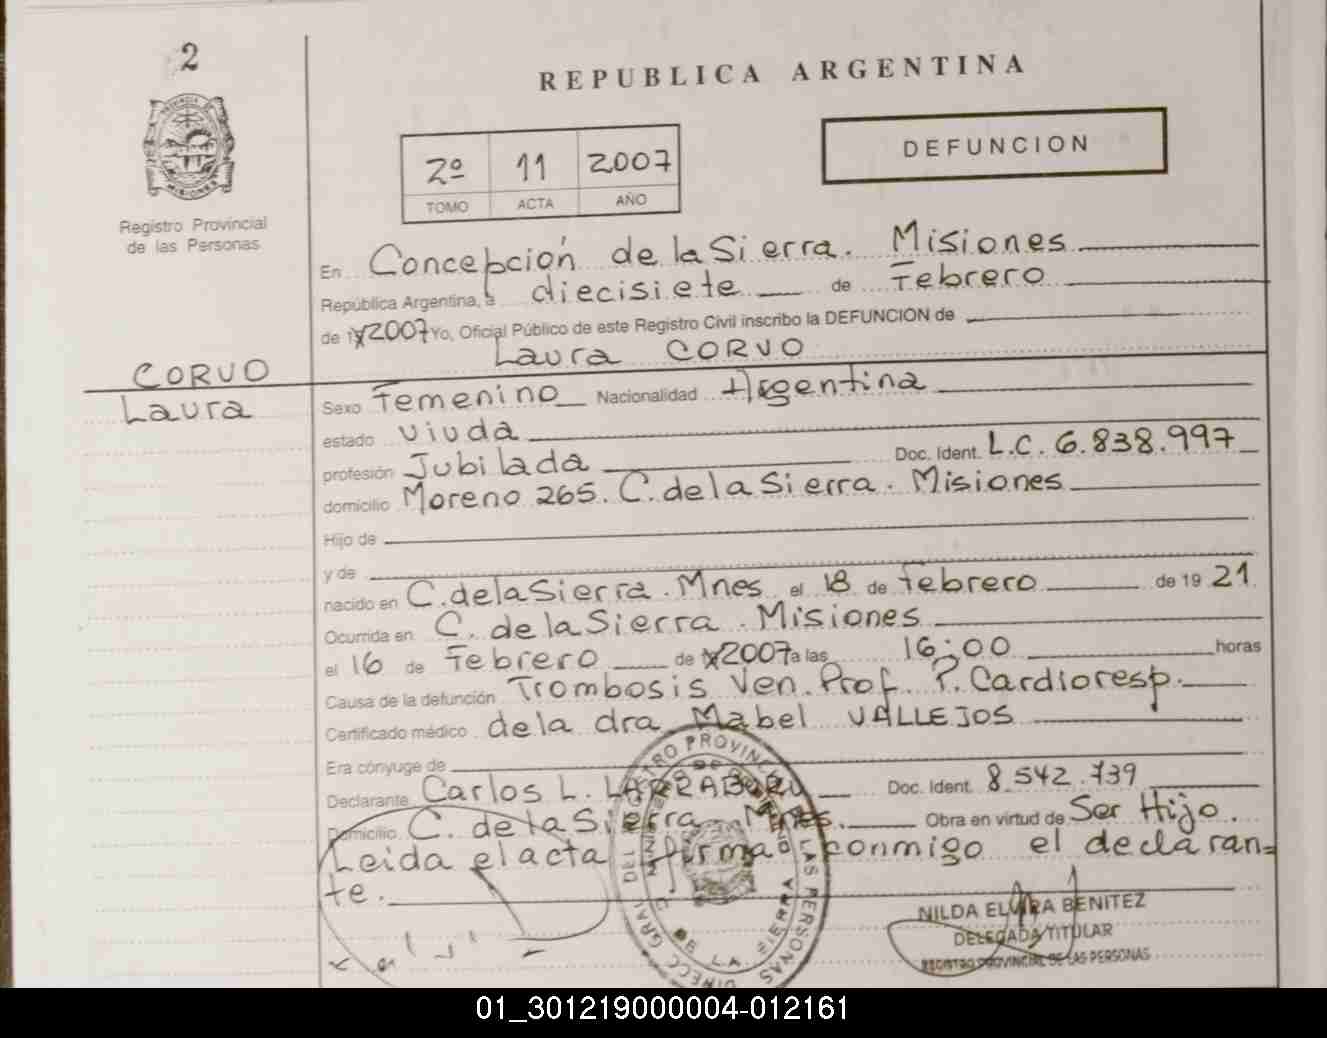 2
REPUBLICA ARGENTINA
PROVINCIA DE
MISIONES
Registro Provincial
de las Personas
2º 11 2007
TOMO ACTA AÑO
DEFUNCION
En Concepción de la Sierra. Misiones
República Argentina, a diecisiete de Febrero
de 2007 Yo, Oficial Público de este Registro Civil inscribo la DEFUNCION de
Laura CORVO
CORVO
Laura
Sexo Femenino Nacionalidad Argentina
estado viuda
profesión Jubilada Doc. Ident. L.C. 6.838.997
domicilio Moreno 265. C. de la Sierra. Misiones
Hijo de
y de
nacido en C. de la Sierra. Mnes el 18 de febrero de 19 21
Ocurrida en C. de la Sierra. Misiones
el 16 de Febrero de 2007 a las 16:00 horas
Causa de la defunción Trombosis Ven. Prof. P. Cardioresp.
Certificado médico de la dra Mabel VALLEJOS
Era cónyuge de
Declarante Carlos L. LARRABURU Doc. Ident. 8.542.739
Domicilio C. de la Sierra Mnes. Obra en virtud de Ser Hijo.
Leida el acta firma conmigo el declaran=
te.
NILDA ELVIRA BENITEZ
DELEGADA TITULAR
REGISTRO PROVINCIAL DE LAS PERSONAS
01_301219000004-012161